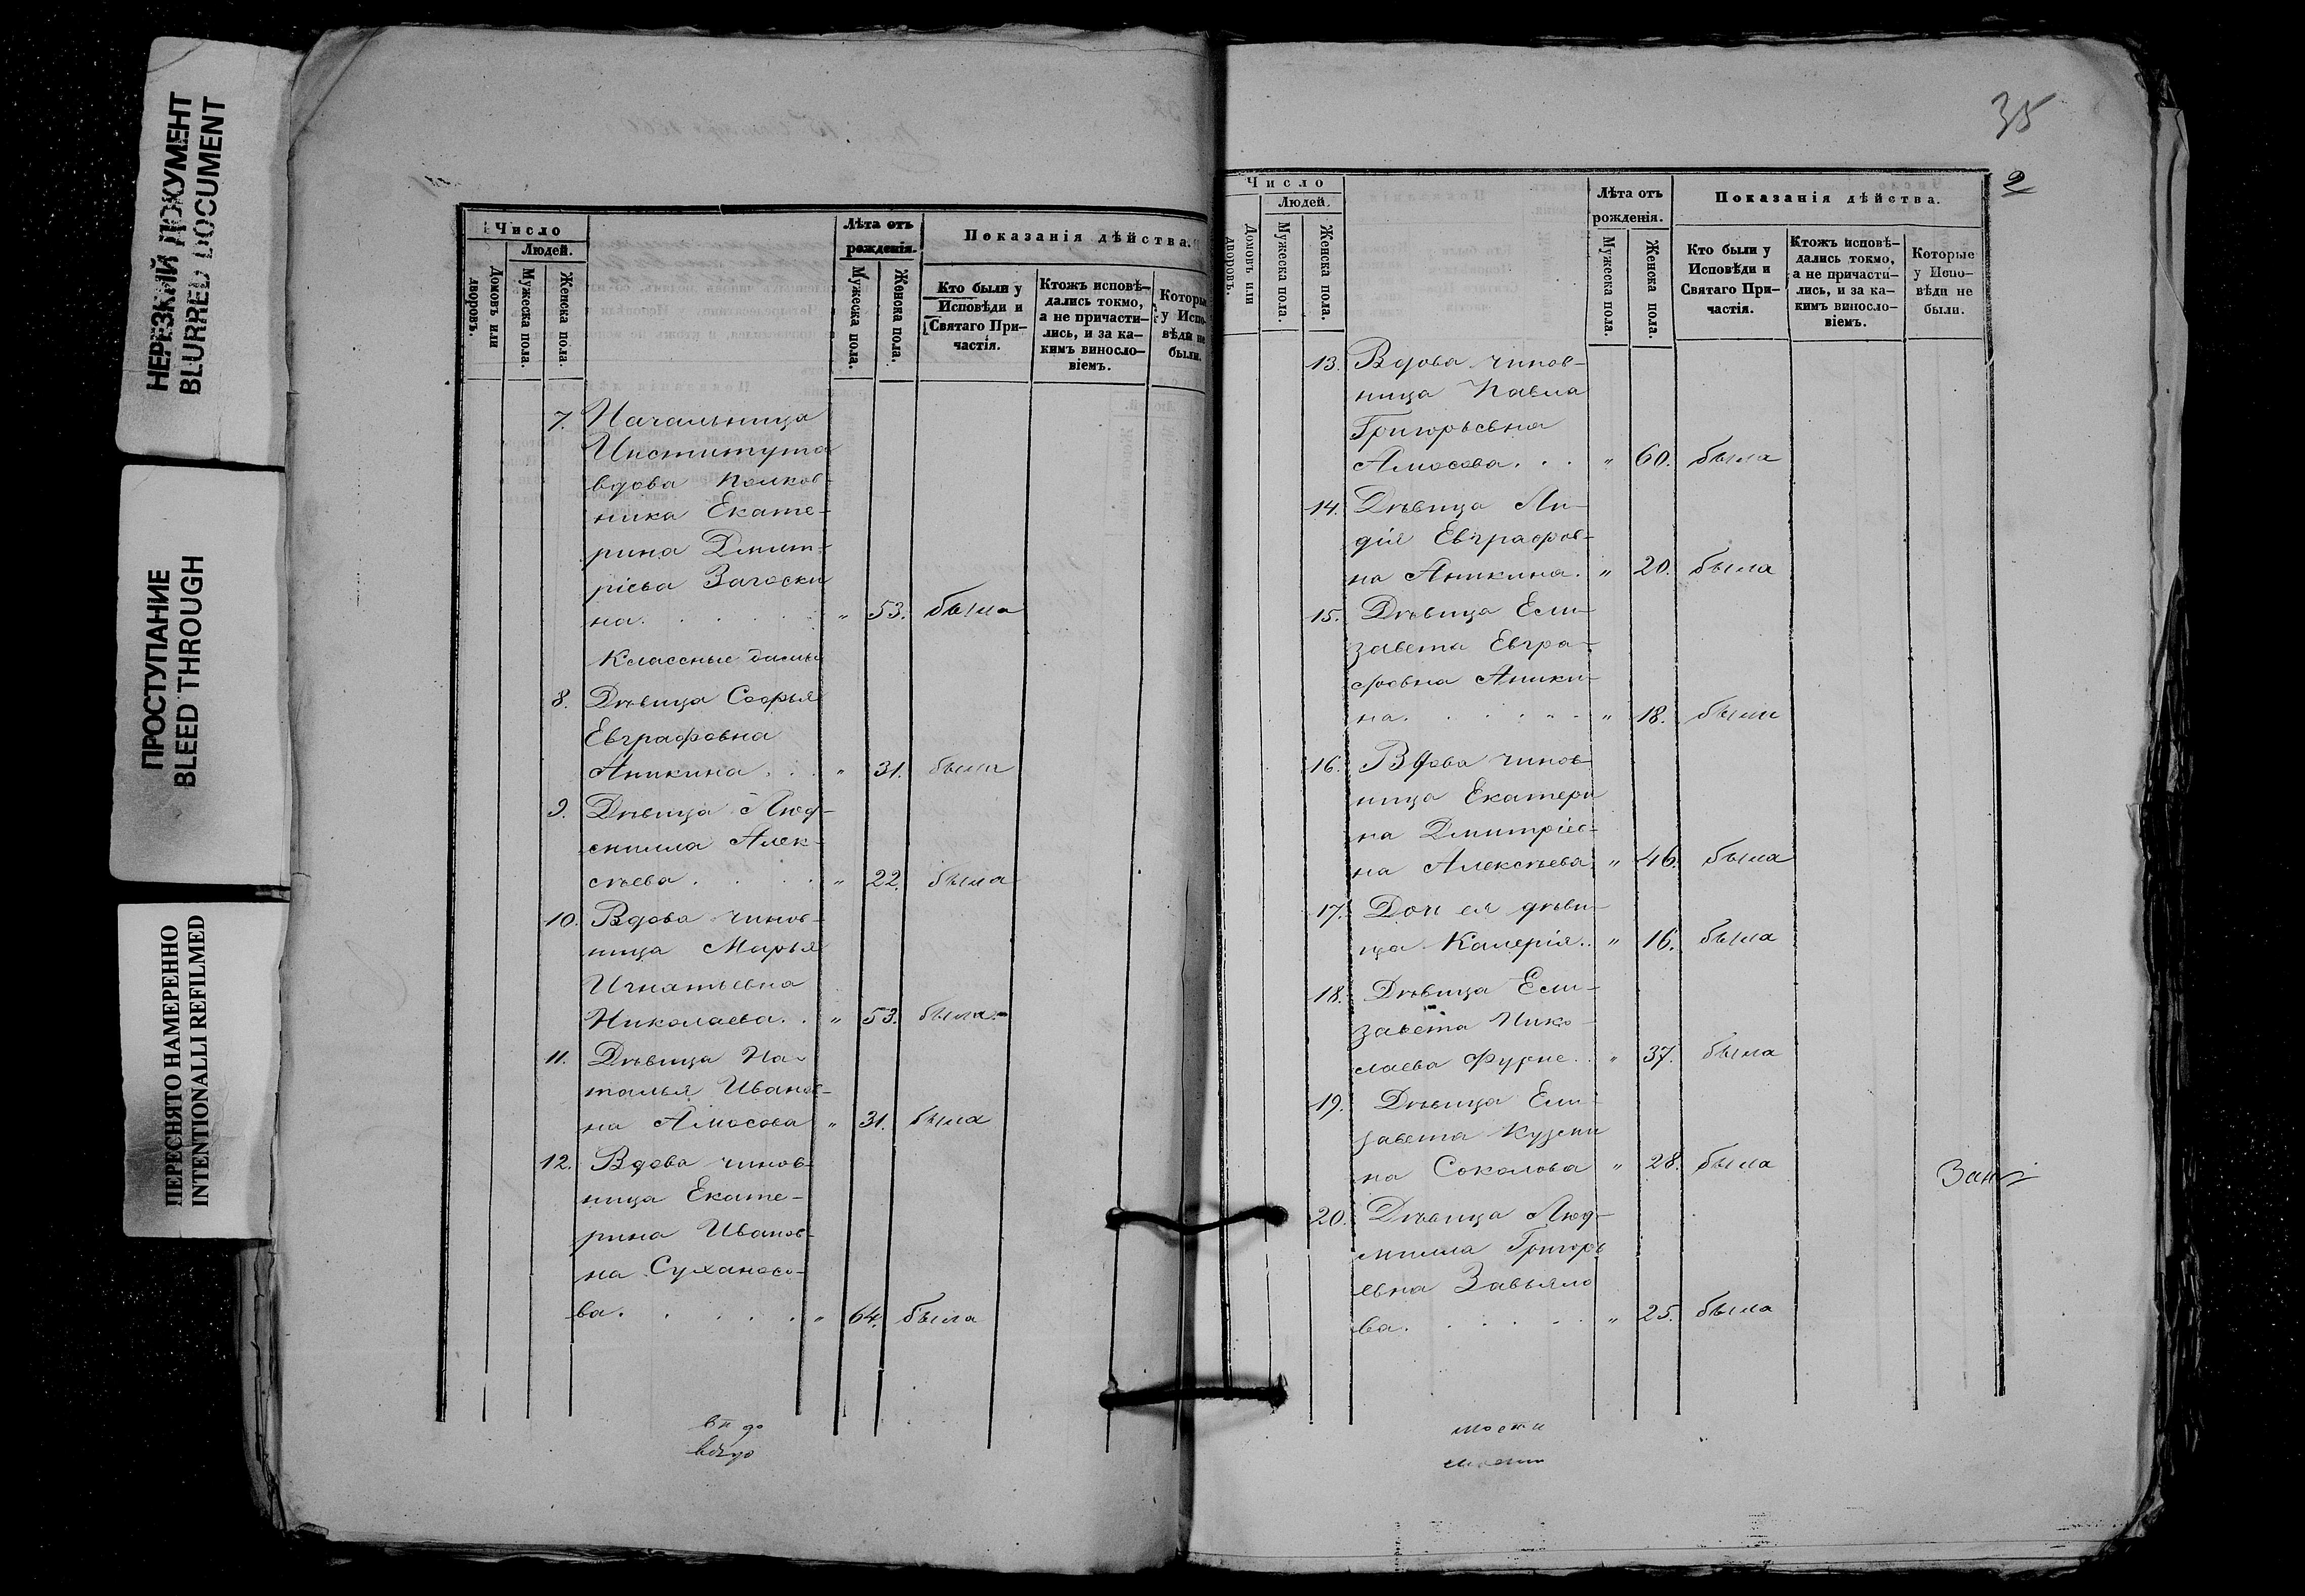 НЕРЕЗКИЙ ДОКУМЕНТ
BLURRED DOCUMENT
ПРОСТУПАНИЕ
BLEED THROUGH
ПЕРЕСНЯТО НАМЕРЕННО
INTENTIONALLI REFILMED
Число
Людей.
Домовъ или дворовъ.
Мужеска пола.
Женска пола.
Лѣта отъ
рожденія.
Мужеска пола.
Женска пола.
Показанія дѣйства.
Кто были у
Исповѣди и
Святаго При-
частія.
Ктожъ исповѣ-
дались токмо,
а не причасти-
лись, и за ка-
кимъ винosло-
віемъ.
Которые
у Испо-
вѣди не
были.
7. Начальница
Института
вдова полков-
ника Екате-
рина Дмит-
ріева Загоски
на. . . . . . " 53. была
Классные дамы
8. Дѣвица Софья
Евграфовна
Аникина . . . " 31. была
9. Дѣвица Люд-
милла Алек-
сѣева . . . . " 22. была
10. Вдова чинов-
ница Марья
Игнатьевна
Николаева. . " 53. была.
11. Дѣвица На-
талья Иванов-
на Амосова " 31. была
12. Вдова чинов-
ница Екате-
рина Иванов-
на Суханосо-
ва. . . . . . " 64. была
35
2
Число
Людей.
Домовъ или дворовъ.
Мужеска пола.
Женска пола.
Лѣта отъ
рожденія.
Мужеска пола.
Женска пола.
Показанія дѣйства.
Кто были у
Исповѣди и
Святаго При-
частія.
Ктожъ исповѣ-
дались токмо,
а не причасти-
лись, и за ка-
кимъ винosло-
віемъ.
Которые
у Испо-
вѣди не
были.
13. Вдова чинов-
ница Павла
Григорьевна
Амосова. . . " 60. была
14. Дѣвица Ли-
дія Евграфов-
на Аникина. " 20. была
15. Дѣвица Ели-
завета Евгра-
фовна Аники-
на. . . . . . " 18. была
16. Вдова чинов-
ница Екатери
на Дмитріев-
на Алексѣева " 46. была
17. Дочь ея дѣви-
ца Калерія. . " 16. была
18. Дѣвица Ели-
завета Нико-
лаева Фурне. . " 37. была
19. Дѣвица Ели-
завета Кузьми
на Соколова " 28. была
20. Дѣвица Люд-
милла Григорь
евна Завьяло
ва. . . . . . " 25. была